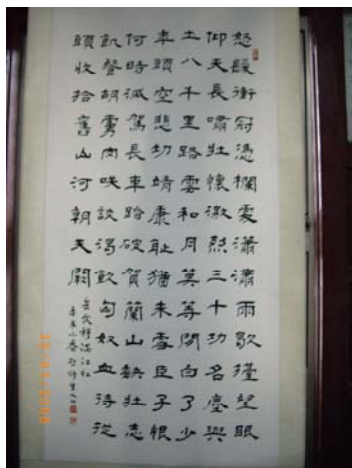 怒髮衝冠憑欄處瀟瀟雨歇擡望眼
仰天長嘯壯懷激烈三十功名塵與
土八千里路雲和月莫等閒白了少
年頭空悲切靖康恥猶未雪臣子恨
何時滅駕長車踏破賀蘭山缺壯志
飢餐胡虜肉咲談渴飲匈奴血待從
頭收拾舊山河朝天闕
岳武穆滿江紅